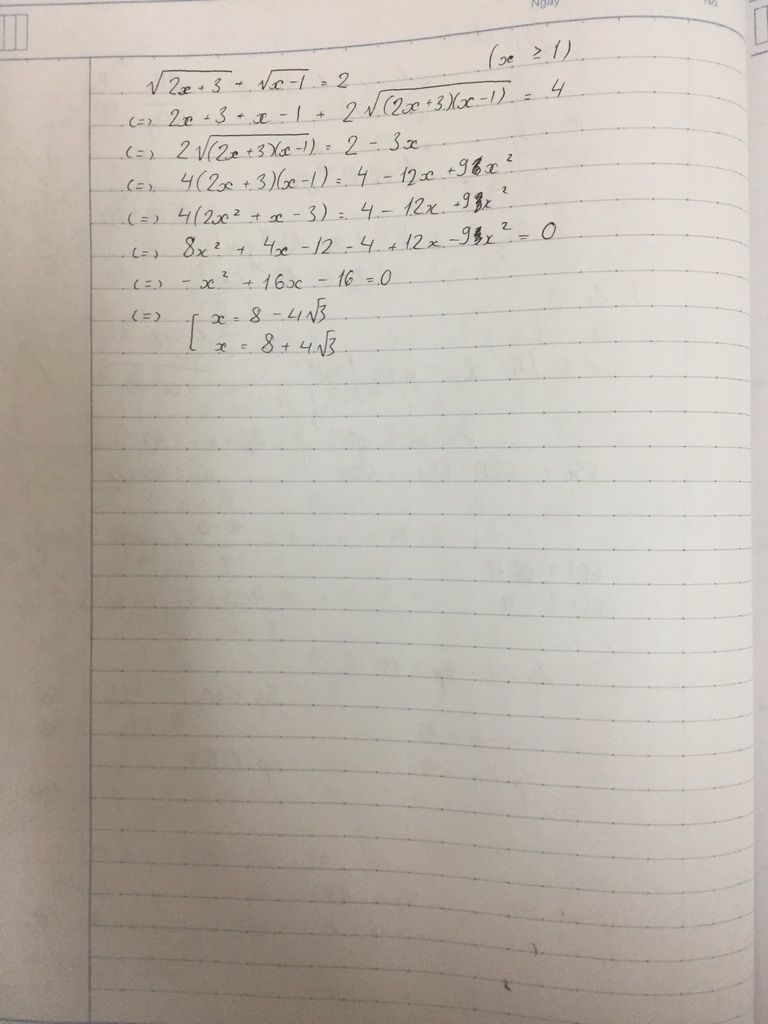 Ngày
No.
√(2x + 3) + √(x - 1) = 2 (x ≥ 1)
(=) 2x + 3 + x - 1 + 2√((2x+3)(x-1)) = 4
(=) 2√((2x+3)(x-1)) = 2 - 3x
(=) 4(2x + 3)(x - 1) = 4 - 12x + 9x²
(=) 4(2x² + x - 3) = 4 - 12x + 9x²
(=) 8x² + 4x - 12 - 4 + 12x - 9x² = 0
(=) - x² + 16x - 16 = 0
(=) [ x = 8 - 4√3
x = 8 + 4√3